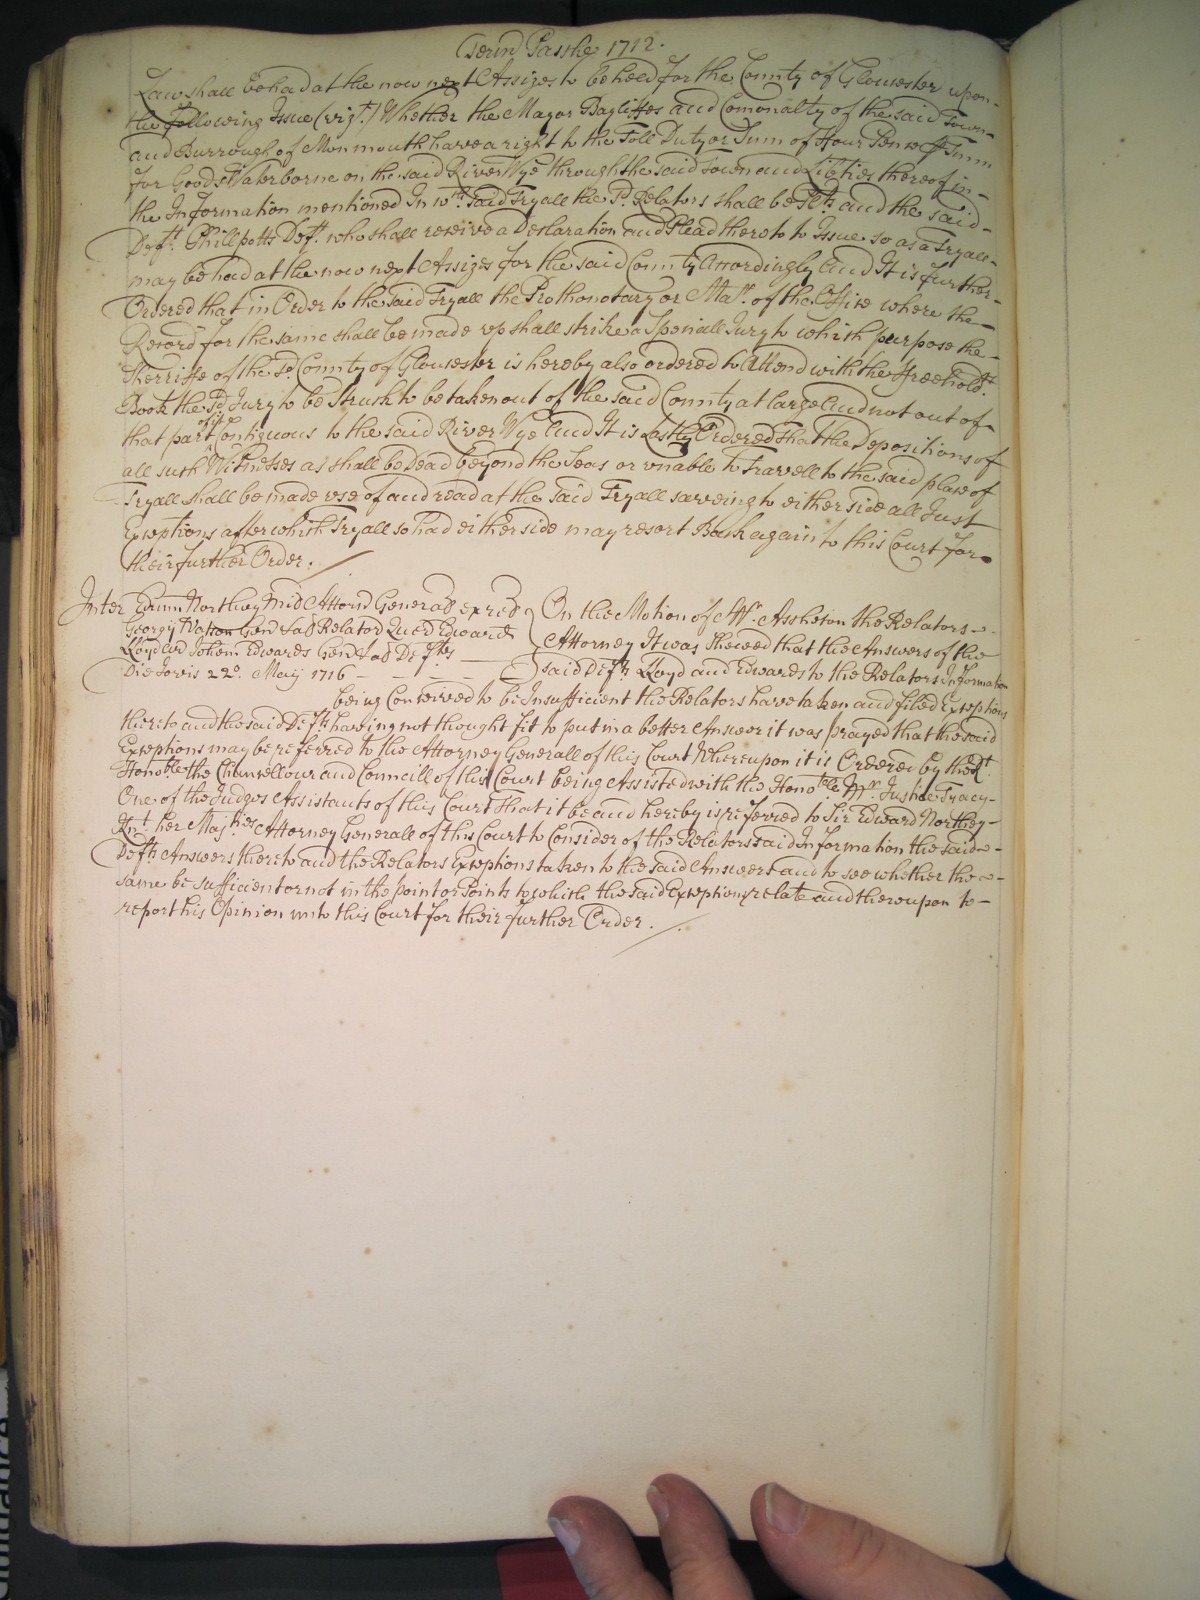 Term Pasche 1712.
Law shall be had at the now next Assizes to be held for the County of Gloucester upon
the following Issue (vizt.) Whether the Mayor Bayliffes and Comonalty of the said Town
and Burrough of Monmouth have a right to the Toll Duty or Sum of ffour Pence ffTunn
for Goods Waterborne on the said River Wye through the said Town and Libties thereof in
the Information mentioned In wch. said Tryall the sd. Relators shall be Plts. and the said
Deft. Phillpotts Deft. who shall receive a Declaration and Plead thereto to Issue so as a Tryall
may be had at the now next Assizes for the said County accordingly And It is further
Ordered that in Order to the said Tryall the Prothonotary or Mar. of the Office where the
Record for the same shall be made up shall strike a Speciall Jury to which purpose the
Sherriffe of the sd. County of Gloucester is hereby also ordered to Attend with the ffreehold.
Book the sd. Jury to be Struck to be taken out of the said County at large And not out of
that part of it Contiguous to the said River Wye And It is Lastly Ordered that the Depositions of
all such Witnesses as shall be Dead beyond the Seas or unable to Travell to the said place of
Tryall shall be made use of and read at the said Tryall saveing to either side all Just
Exceptions after which Tryall so had either side may resort Back again to this Court for
their further Order.
Inter Edrum Northey Mil Attorn General ex rel
Georgij Watton Gen & al Relator Quer Edward
Lloyd et Johem Edwards Gen & al Defts
Die Jovis 22o. Maij 1716
On the Motion of Mr. Assheton the Relators
Attorney It was shewed that the Answers of the
said Defts Lloyd and Edwards to the Relators Information
being Conceived to be Insufficient the Relators have taken and filed Exceptions
thereto and the said Defts having not thought fit to put in a better Answer it was prayed that the said
Exceptions may be referred to the Attorney Generall of this Court Whereupon it is Ordered by the Rt.
Honoble the Chancellour and Councill of this Court being Assisted with the Honoble Mr. Justice Tracy
One of the Judges Assistants of this Court That it be and hereby is referred to Sir Edward Northey
Knt. her Majties Attorney Generall of this Court to Consider of the Relators said Information the said
Defts Answers thereto and the Relators Exceptions taken to the said Answers and to see whether the
same be sufficient or not in the point or Points to which the said Exceptions relate and thereupon to
report his Opinion unto this Court for their further Order.